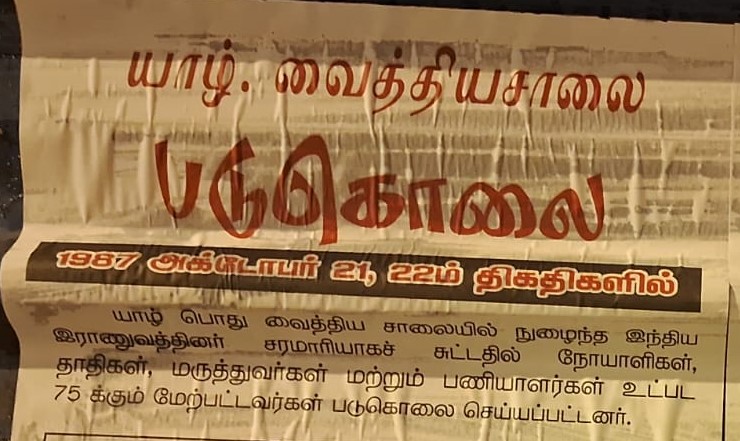 யாழ். வைத்தியசாலை
படுகொலை
1987 அக்டோபர் 21, 22ம் திகதிகளில்
யாழ் பொது வைத்திய சாலையில் நுழைந்த இந்திய
இராணுவத்தினர் சரமாரியாகச் சுட்டதில் நோயாளிகள்,
தாதிகள், மருத்துவர்கள் மற்றும் பணியாளர்கள் உட்பட
75 க்கும் மேற்பட்டவர்கள் படுகொலை செய்யப்பட்டனர்.